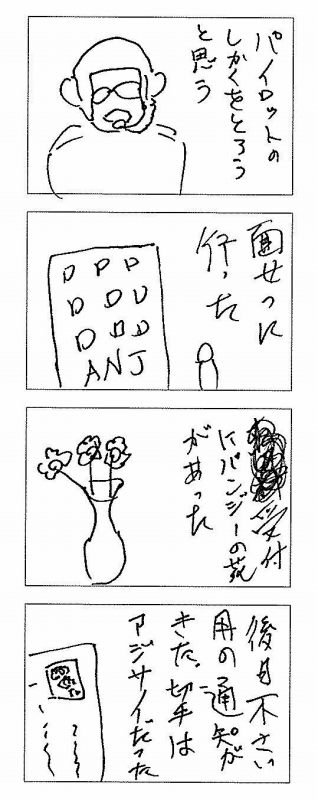 パイロットの
しかくをとろう
と思う
面せつに
行った
ANJ
受付
にパンジーの花
があった
後日不さい
用の通知が
きた。切手は
アジサイだった